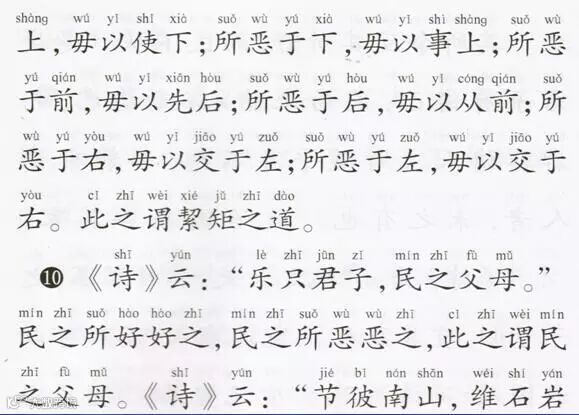 shàng wú yǐ shǐ xià suǒ wù yú xià wú yǐ shì shàng suǒ wù
上，毋以使下；所恶于下，毋以事上；所恶
yú qián wú yǐ xiān hòu suǒ wù yú hòu wú yǐ cóng qián suǒ
于前，毋以先后；所恶于后，毋以从前；所
wù yú yòu wú yǐ jiāo yú zuǒ suǒ wù yú zuǒ wú yǐ jiāo yú
恶于右，毋以交于左；所恶于左，毋以交于
yòu cǐ zhī wèi xié jǔ zhī dào
右。此之谓絜矩之道。
shī yún lè zhǐ jūn zǐ mín zhī fù mǔ
❿《诗》云：“乐只君子，民之父母。”
mín zhī suǒ hào hào zhī mín zhī suǒ wù wù zhī cǐ zhī wèi mín
民之所好好之，民之所恶恶之，此之谓民
zhī fù mǔ shī yún jié bǐ nán shān wéi shí yán
之父母。《诗》云：“节彼南山，维石岩